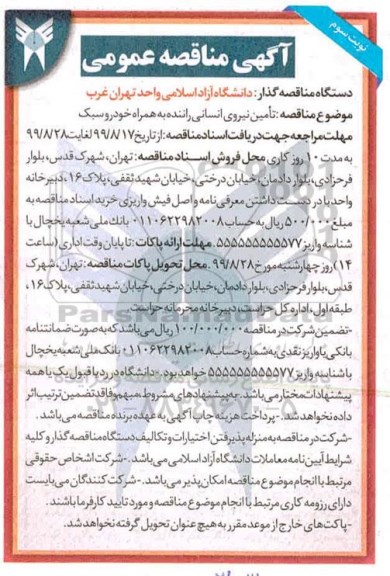 نوبت سوم
آگهی مناقصه عمومی
دستگاه مناقصه گذار: دانشگاه آزاد اسلامی واحد تهران غرب
موضوع مناقصه: تأمین نیروی انسانی راننده به همراه خودرو سبک
مهلت مراجعه جهت دریافت اسناد مناقصه: از تاریخ ۹۹/۸/۱۷ لغایت ۹۹/۸/۲۸
به مدت ۱۰ روز کاری محل فروش اسناد مناقصه: تهران، شهرک قدس، بلوار
فرحزادی، بلوار دادمان، خیابان درختی، خیابان شهید ثقفی، پلاک ۱۶، دبیرخانه
واحد با در دست داشتن معرفی نامه و اصل فیش واریزی خرید اسناد مناقصه به
مبلغ ۵۰۰/۰۰۰ ریال به حساب ۰۱۱۰۶۲۲۹۸۲۰۰۸ بانک ملی شعبه یخچال با
شناسه واریز ۵۵۵۵۵۵۵۵۵۵۵۷۷. مهلت ارائه پاکات: تا پایان وقت اداری (ساعت
۱۴) روز چهارشنبه مورخ ۹۹/۸/۲۸. محل تحویل پاکات مناقصه: تهران، شهرک
قدس، بلوار فرحزادی، بلوار دادمان، خیابان درختی، خیابان شهید ثقفی، پلاک ۱۶،
طبقه اول، اداره کل حراست، دبیرخانه محرمانه حراست.
-تضمین شرکت در مناقصه ۱۰۰/۰۰۰/۰۰۰ ریال می باشد که به صورت ضمانتنامه
بانکی یا واریز نقدی به شماره حساب ۰۱۱۰۶۲۲۹۸۲۰۰۸ بانک ملی شعبه یخچال
با شناسه واریز ۵۵۵۵۵۵۵۵۵۵۵۷۷ خواهد بود. -دانشگاه در رد یا قبول یک یا همه
پیشنهادات مختار می باشد. -به پیشنهادهای مشروط، مبهم و فاقد تضمین ترتیب اثر
داده نخواهد شد. -پرداخت هزینه چاپ آگهی به عهده برنده مناقصه می باشد.
-شرکت در مناقصه به منزله پذیرفتن اختیارات و تکالیف دستگاه مناقصه گذار و کلیه
شرایط آیین نامه معاملات دانشگاه آزاد اسلامی می باشد. -شرکت اشخاص حقوقی
مرتبط با انجام موضوع مناقصه امکان پذیر می باشد. -شرکت کنندگان می بایست
دارای رزومه کاری مرتبط با انجام موضوع مناقصه و مورد تایید کارفرما باشند.
-پاکت های خارج از موعد مقرر به هیچ عنوان تحویل گرفته نخواهد شد.